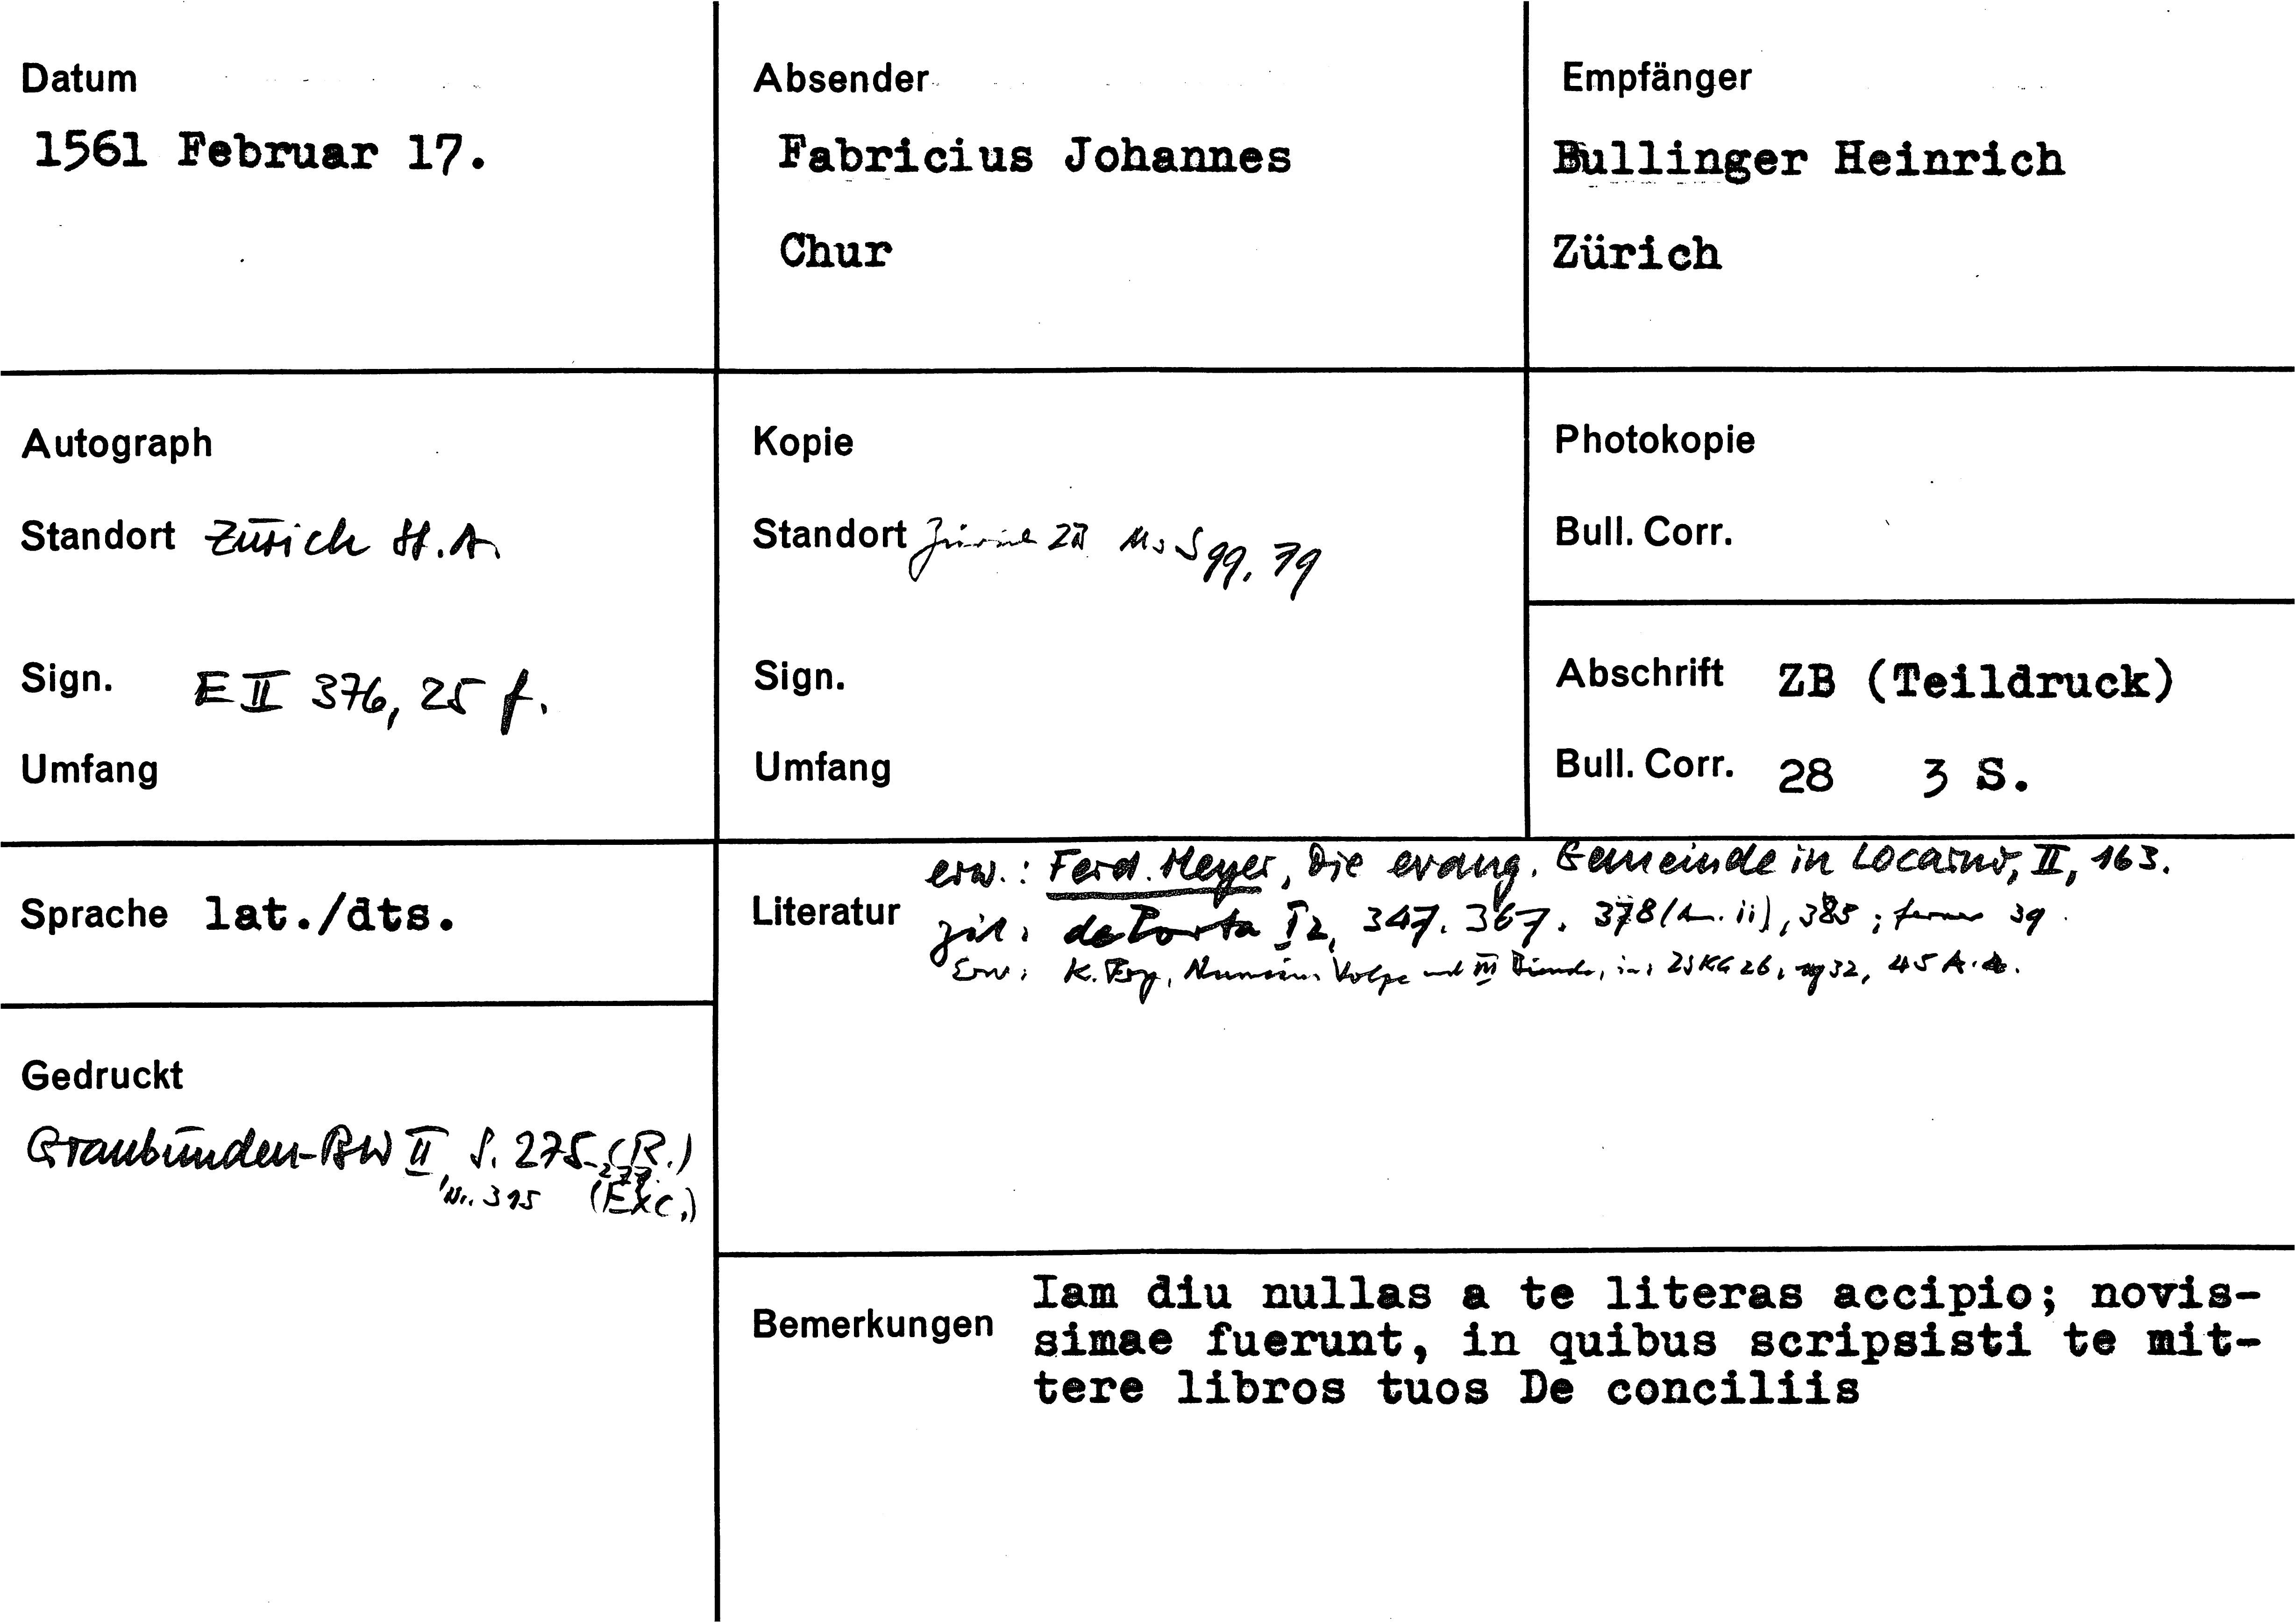 Datum
1561 Februar 17.
Absender
Fabricius Johannes
Chur
Empfänger
Bullinger Heinrich
Zürich
Autograph
Standort Zürich St.A.
Sign. E II 376, 25 f.
Umfang
Kopie
Standort Zürich ZB Ms S 99, 79
Sign.
Umfang
Photokopie
Bull. Corr.
Abschrift ZB (Teildruck)
Bull. Corr. 28 3 S.
Sprache lat./dts.
Gedruckt
Graubünden-BW II, S. 275-277. (R.)
Nr. 315 (Exc.)
Literatur
erw.: Ferd. Meyer, Die evang. Gemeinde in Locarno, II, 163.
zit.: de Porta I2, 347. 367. 378 (A. ii), 385; ferner 39.
Erw: K. Volpe und III Bünde, in: ZSKG 26, 1932, 45 A.
Bemerkungen
Iam diu nullas a te literas accipio; novis-
simae fuerunt, in quibus scripsisti te mit-
tere libros tuos De conciliis